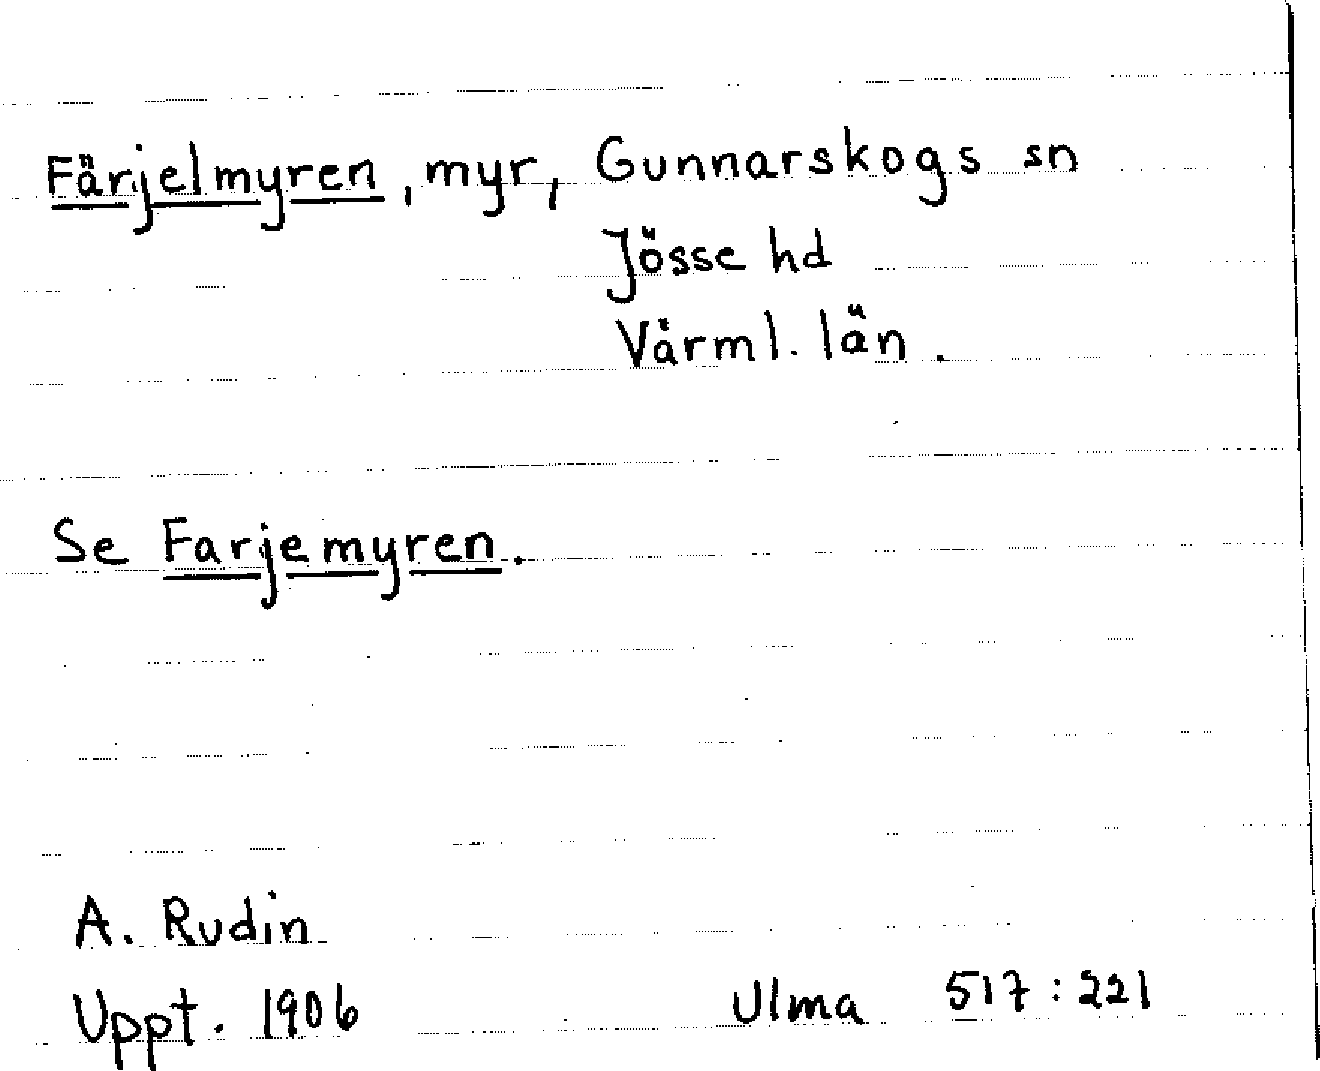 Färjelmyren, myr, Gunnarskogs sn
Jösse hd
Värml. län.
Se Farjemyren.
A. Rudin
Uppt. 1906
Ulma 517:221